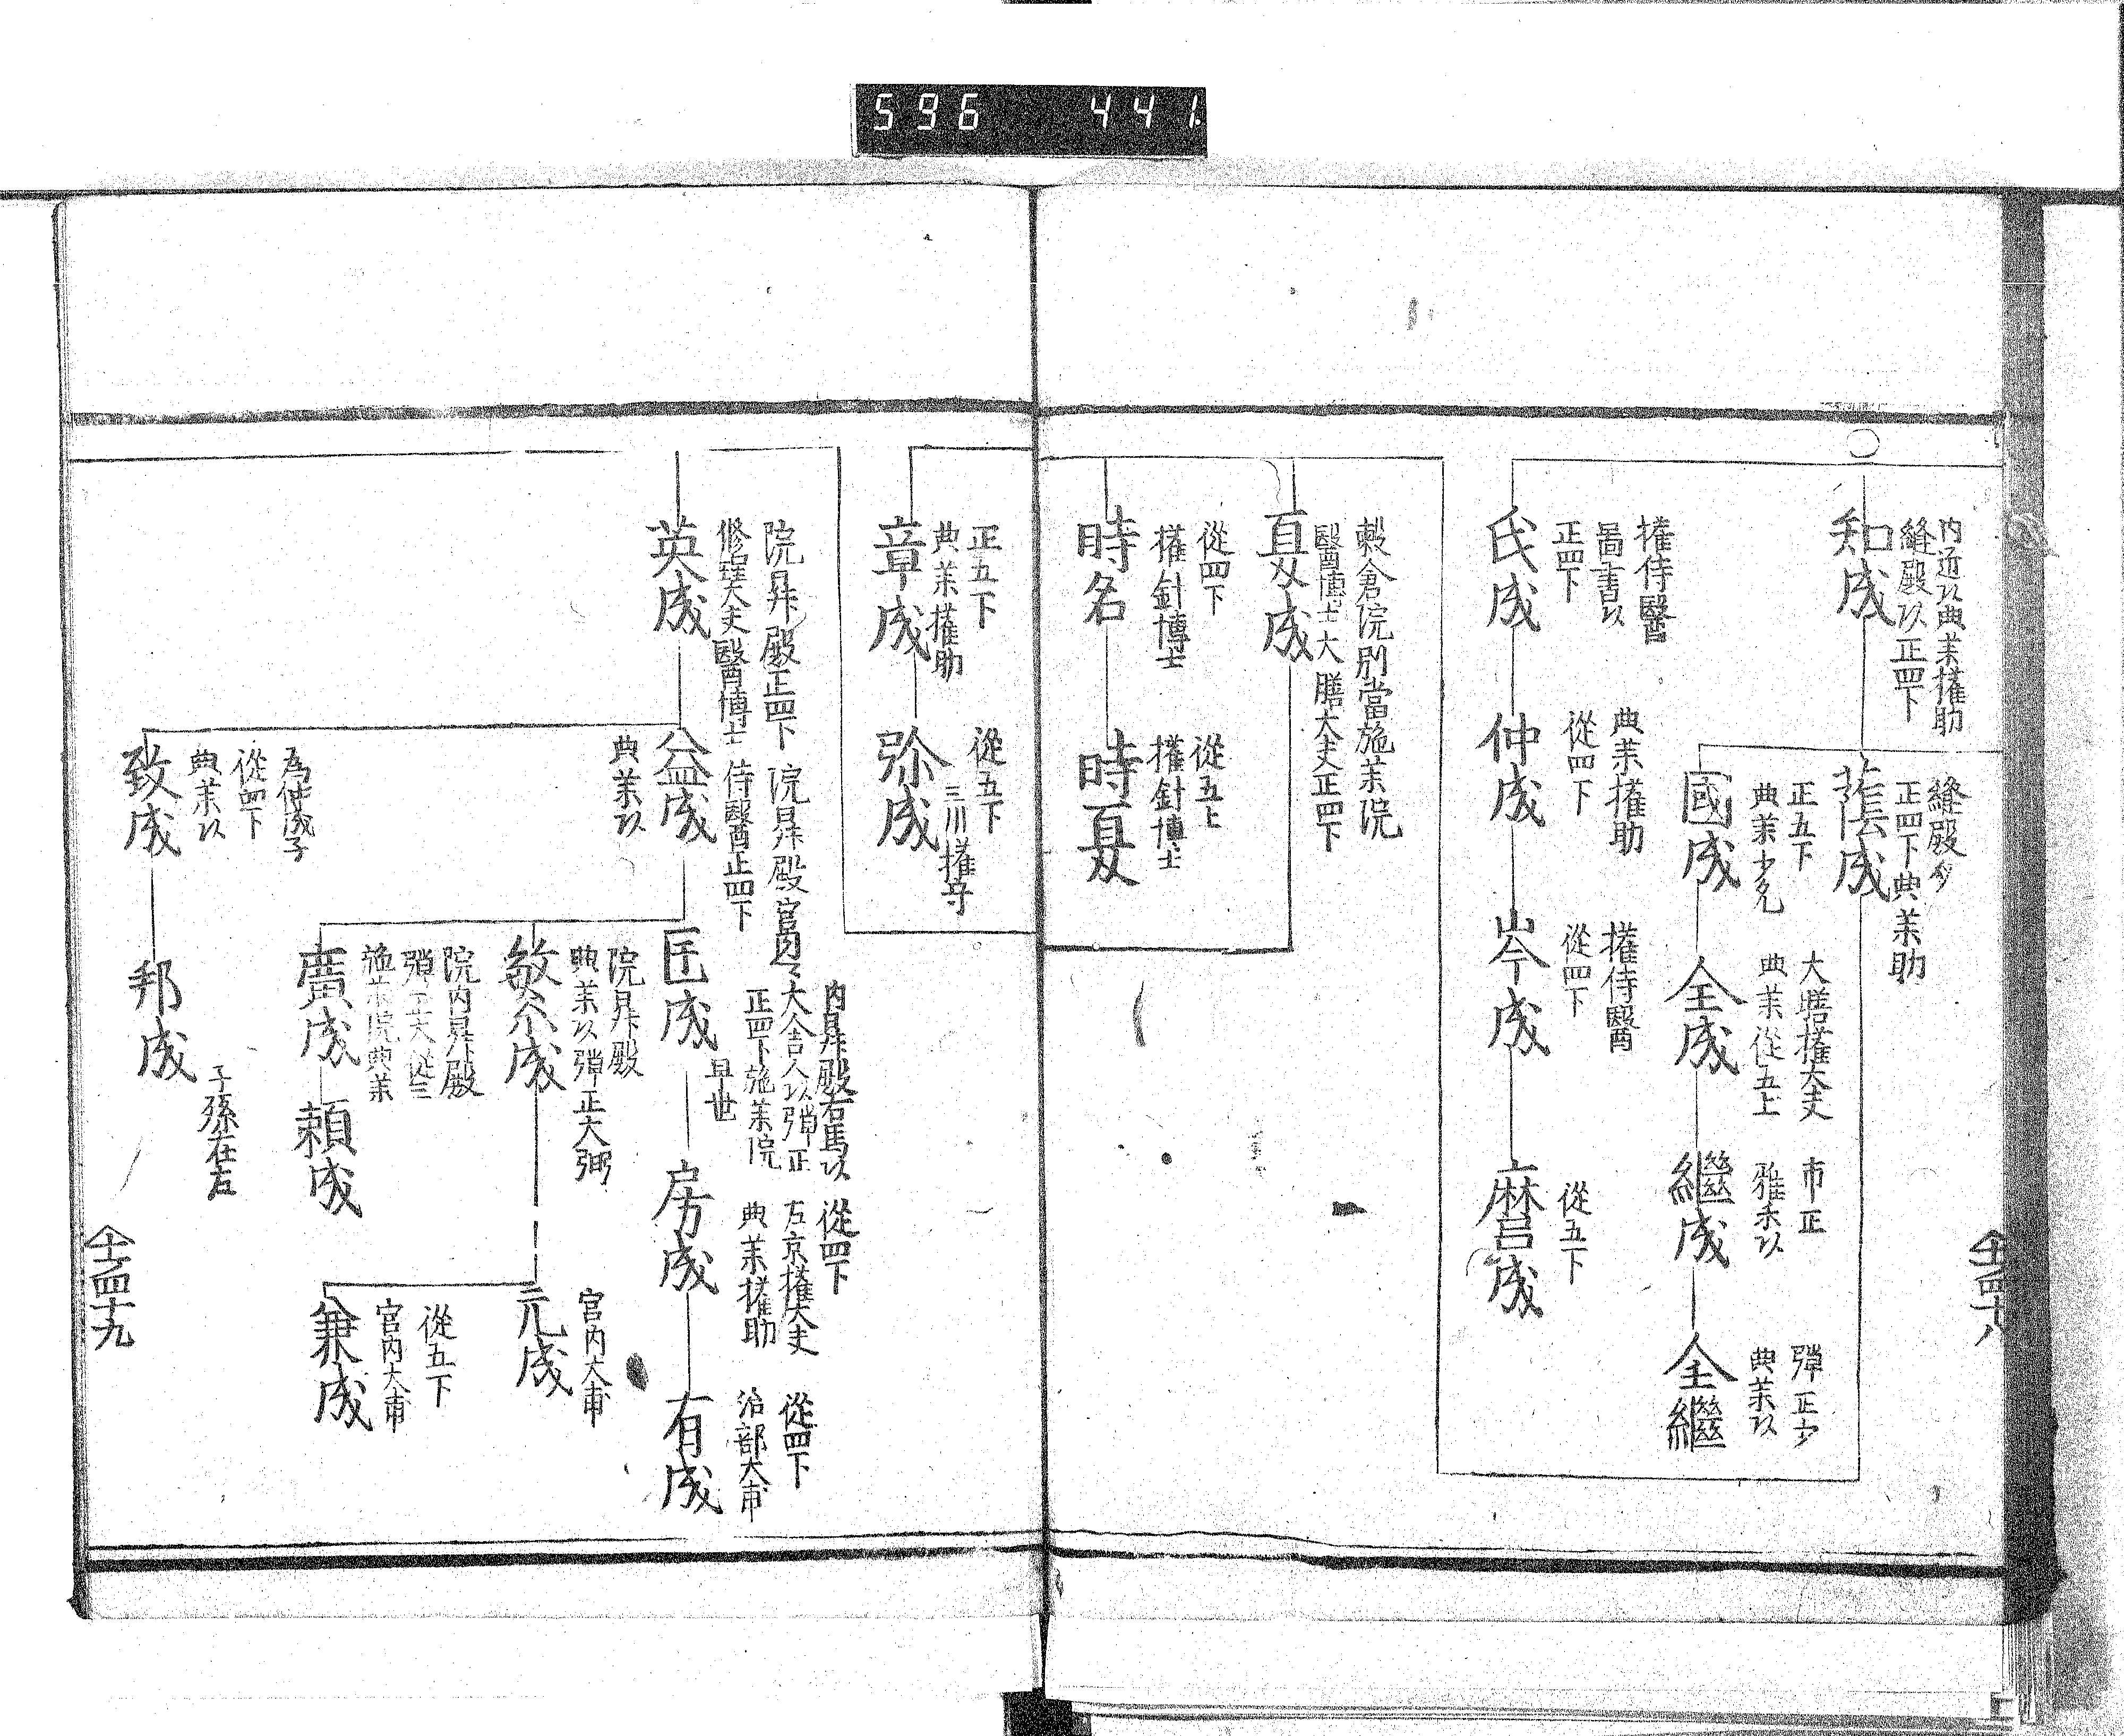 596 441
知成
内近以典藥權助
縫殿以正四下
蔭成
縫殿少
正四下典藥助
國成
正五下
典藥少允
全成
大膳權大夫
典藥從五上
繼成
市正
雅楽以
全繼
彈正少
典藥以
氏成
權侍醫
啚書以
正四下
仲成
典藥權助
從四下
岑成
權侍醫
從四下
麿成
從五下
夏成
穀倉院別當施藥院
醫博士大膳大夫正四下
時名
從四下
權針博士
時夏
從五上
權針博士
仝四十八
章成
正五下
典藥權助
弥成
從五下
三川權守
英成
院昇殿正四下
修理大夫醫博士
益成
院昇殿宮内
侍醫正四下
典藥以
匡成
内昇殿右馬以
大舍人以彈正
正四下施藥院
早世
房成
從四下
左京權大夫
典藥權助
有成
從四下
治部大甫
敦成
院昇殿
典藥以彈正大弼
元成
宮内大甫
兼成
從五下
宮内大甫
廣成
院内昇殿
施藥院典藥
頼成
致成
為仲成子
從四下
典藥以
邦成
子孫在左
仝四十九